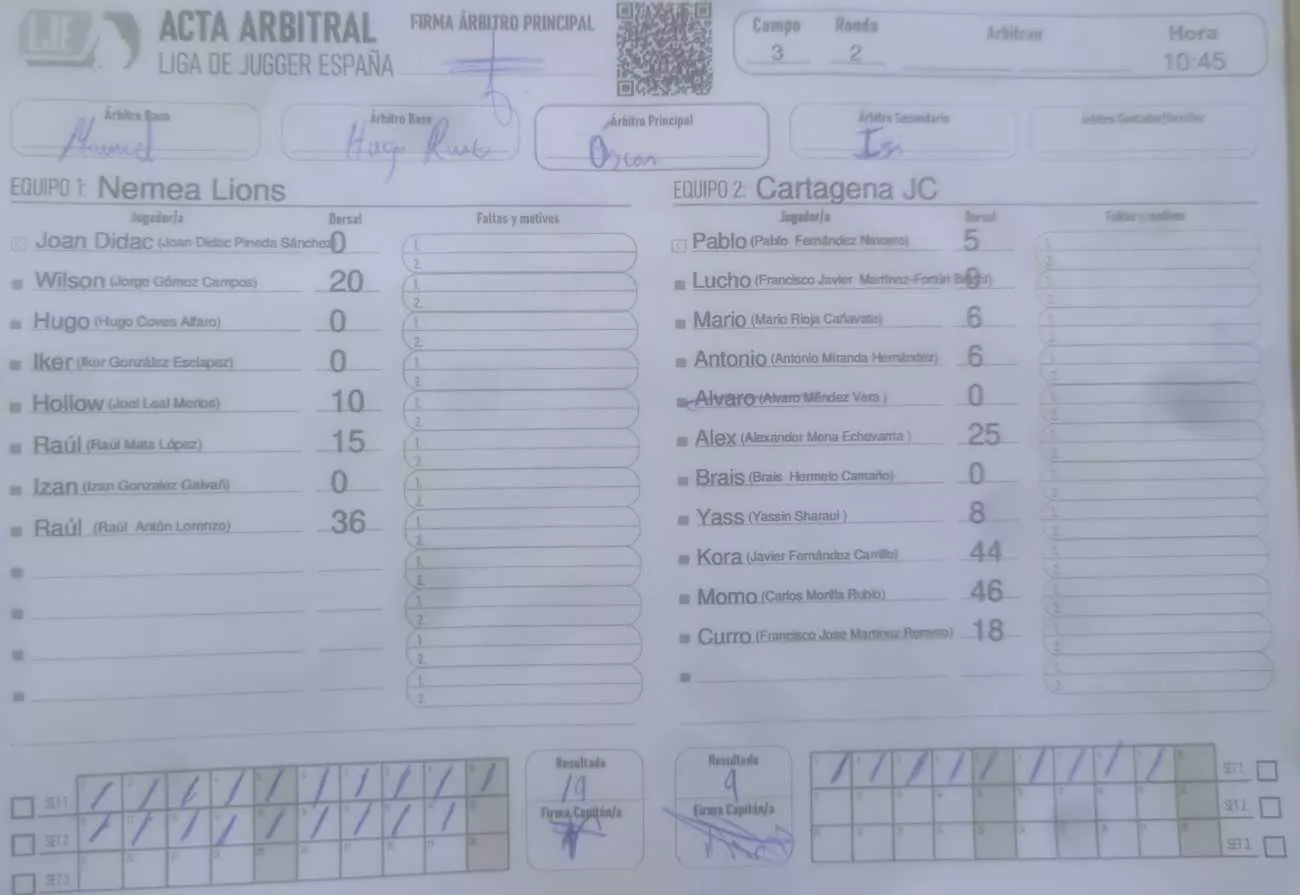 LJE ACTA ARBITRAL
LIGA DE JUGGER ESPAÑA
FIRMA ÁRBITRO PRINCIPAL
Campo Ronda Arbitran Hora
3 2 10:45
Árbitro Base Árbitro Base Árbitro Principal Árbitro Secundario
Manuel Hugo Oscar
EQUIPO 1: Nemea Lions
Jugador/a Dorsal Faltas y motivos
Joan Didac (Joan Didac Pineda Sánchez) 0
Wilson (Jorge Gómez Campos) 20
Hugo (Hugo Coves Alfaro) 0
Iker (Iker González Esclapez) 0
Hollow (Joel Leal Merlos) 10
Raúl (Raúl Mata López) 15
Izan (Izan Gonzalez Galvañ) 0
Raúl (Raúl Antón Lorenzo) 36
EQUIPO 2: Cartagena JC
Jugador/a Dorsal Faltas y motivos
Pablo (Pablo Fernández Navarro) 5
Lucho (Francisco Javier Martínez-Fortún 0
Mario (Mario Rioja Cañavate) 6
Antonio (Antonio Miranda Hernández) 6
Alvaro (Alvaro Méndez Vera ) 0
Alex (Alexander Mena Echevarria ) 25
Brais (Brais Hermelo Camaño) 0
Yass (Yassin Sharaui ) 8
Kora (Javier Fernández Carrillo) 44
Momo (Carlos Morilla Rubio) 46
Curro (Francisco Jose Martinez Romero) 18
SET 1
SET 2
SET 3
Resultado
19
Firma Capitán/a
Resultado
9
Firma Capitán/a
SET 1
SET 2
SET 3